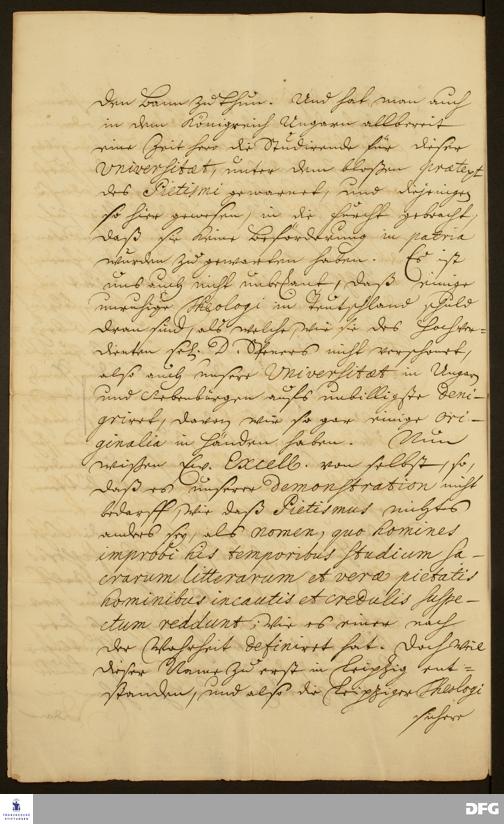 den bann zu thun. Und hat man auch
in dem Königreich Ungarn allbereit
eine Zeit hero die Studirende für dieser
Universitaet, unter dem blossen praetext
des Pietismi gewarnet, und diejenigen
so hier gewesen, in die furcht gebracht,
daß sie keine beförderung in patria
wurden zu gewarten haben. Es ist
uns auch nicht unbekant, daß einige
unruhige Theologi in Teutschland schuld
dran sind, als welche, wie sie des Hochver-
dienten sel. D. Speners nicht verschonet,
also auch unsere Universitaet in Ungarn
und Siebenbürgen aufs unbilligste deni-
griret, davon wir so gar einige ori-
ginalia in Händen haben. Nun
wissen Ew. Excell. von selbst, so,
daß es unserer demonstration nicht
bedarff, wie daß Pietismus nichts
anders sey, als nomen, quo homines
improbi his temporibus studium sa-
crarum litterarum et verae pietatis
hominibus incautis et credulis suspe-
ctum reddunt; wie es einer nach
der Wahrheit definiret hat. Doch weil
dieser Name zu erst in Leipzig ent-
standen, und also die Leipziger Theologi
FRANCKESCHE
STIFTUNGEN
DFG